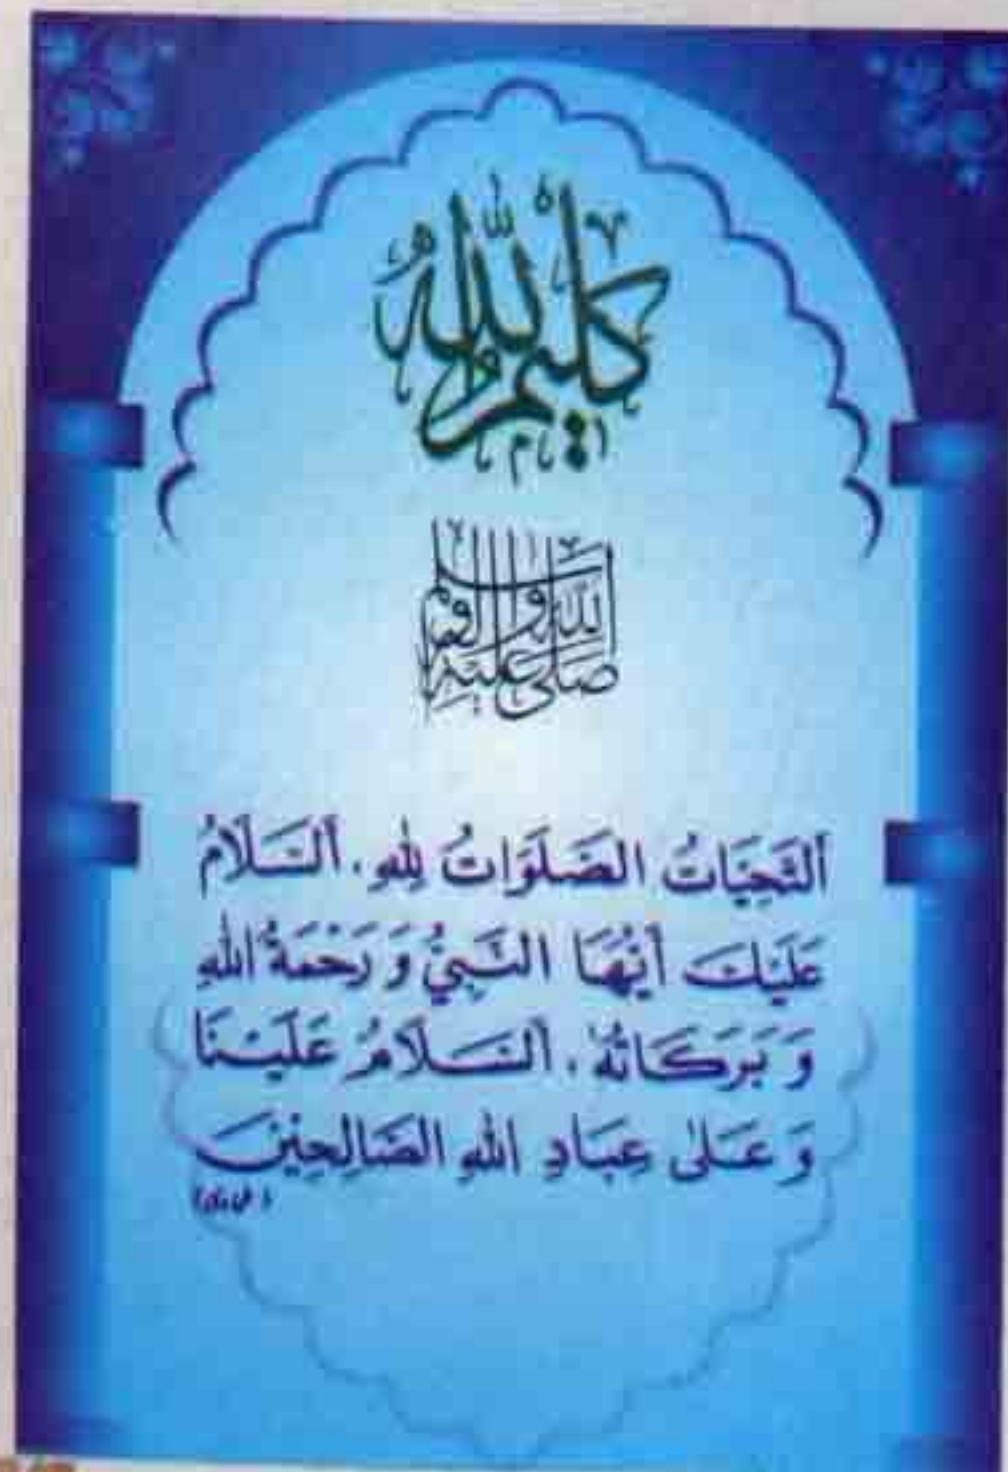 كَلِيمُ اللّٰهِ
صَلَّى اللّٰهُ عَلَيْهِ وَآلِهٖ وَسَلَّم
اَلتَّحِيَّاتُ الصَّلَوَاتُ لِلّٰهِ، اَلسَّلَامُ
عَلَيْكَ اَيُّهَا النَّبِيُّ وَ رَحْمَةُ اللّٰهِ
وَ بَرَكَاتُهٗ، اَلسَّلَامُ عَلَيْنَا
وَ عَلٰى عِبَادِ اللّٰهِ الصَّالِحِيْنَ